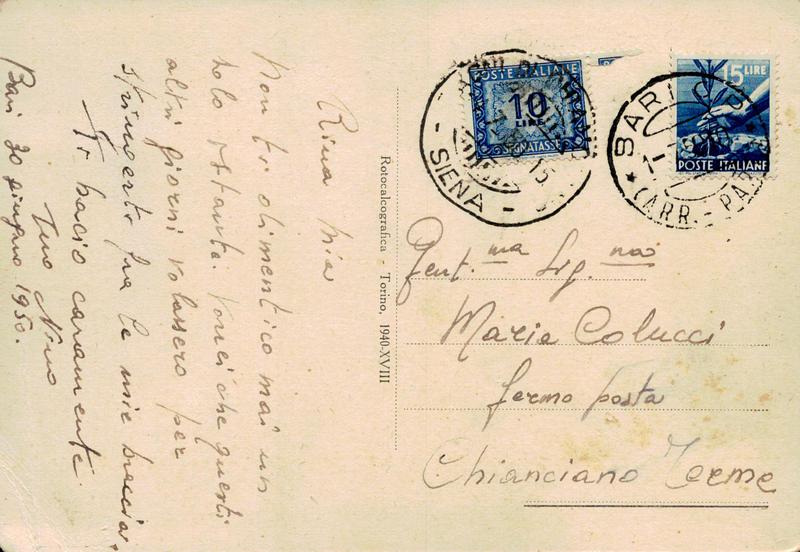 Rina mia
Non ti dimentico mai un
solo istante. Vorrei che questi
altri giorni volassero per
stringerti fra le mie braccia.
Ti bacio caramente
Tuo Nino
Bari 30 giugno 1950.
Rotocalcografica - Torino, 1940-XVIII
POSTE ITALIANE
10
LIRE
SEGNATASSE
SIENA
15 LIRE
POSTE ITALIANE
BARI
(ARR. - PAR
Gent.ma Sig.na
Maria Colucci
fermo posta
Chianciano Terme